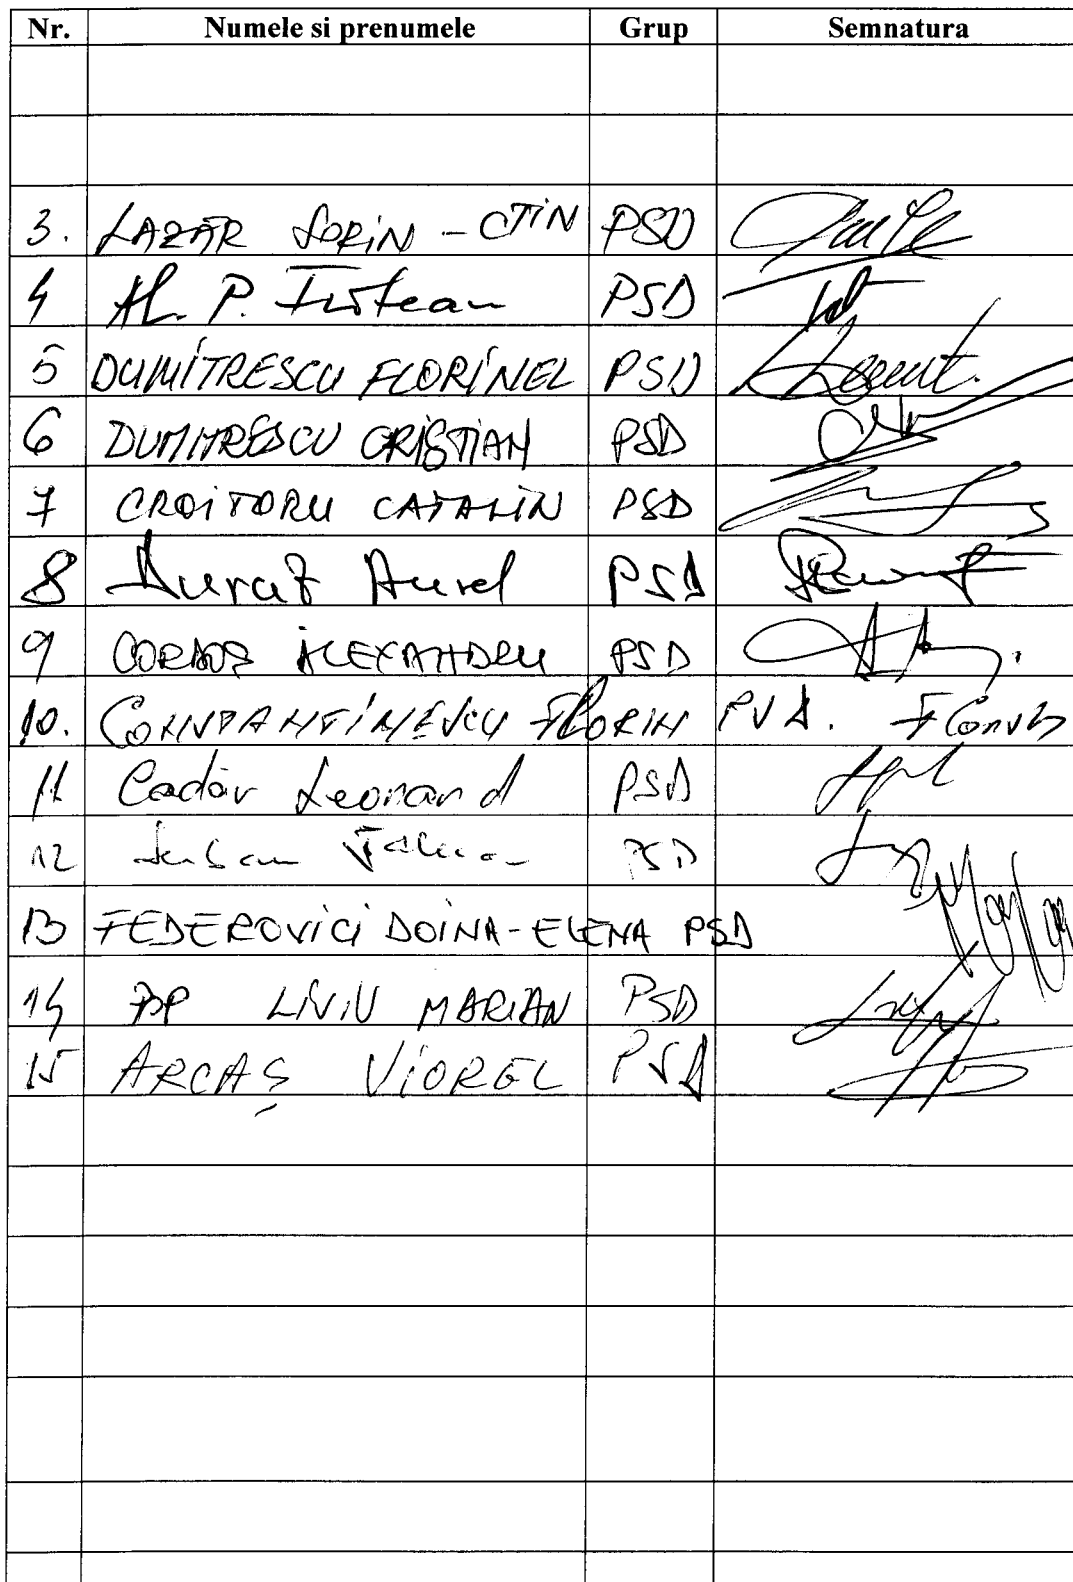 Nr. Numele si prenumele Grup Semnatura
3. LAZĂR SORIN - CTIN PSD
4 Al. P. PSD
5 DUMITRESCU FLORINEL PSD
6 DUMITRESCU CRISTIAN PSD
7 CROITORU CATALIN PSD
8 Aurel PSD
9 CORDOȘ ALEXANDRU PSD
10. CONSTANTINESCU FLORIN PSD.
11 Cadăr Leonard PSD
12 PSD
13 FEDEROVICI DOINA-ELENA PSD
14 POP LIVIU MARIAN PSD
15 ARCAȘ VIOREL PSD